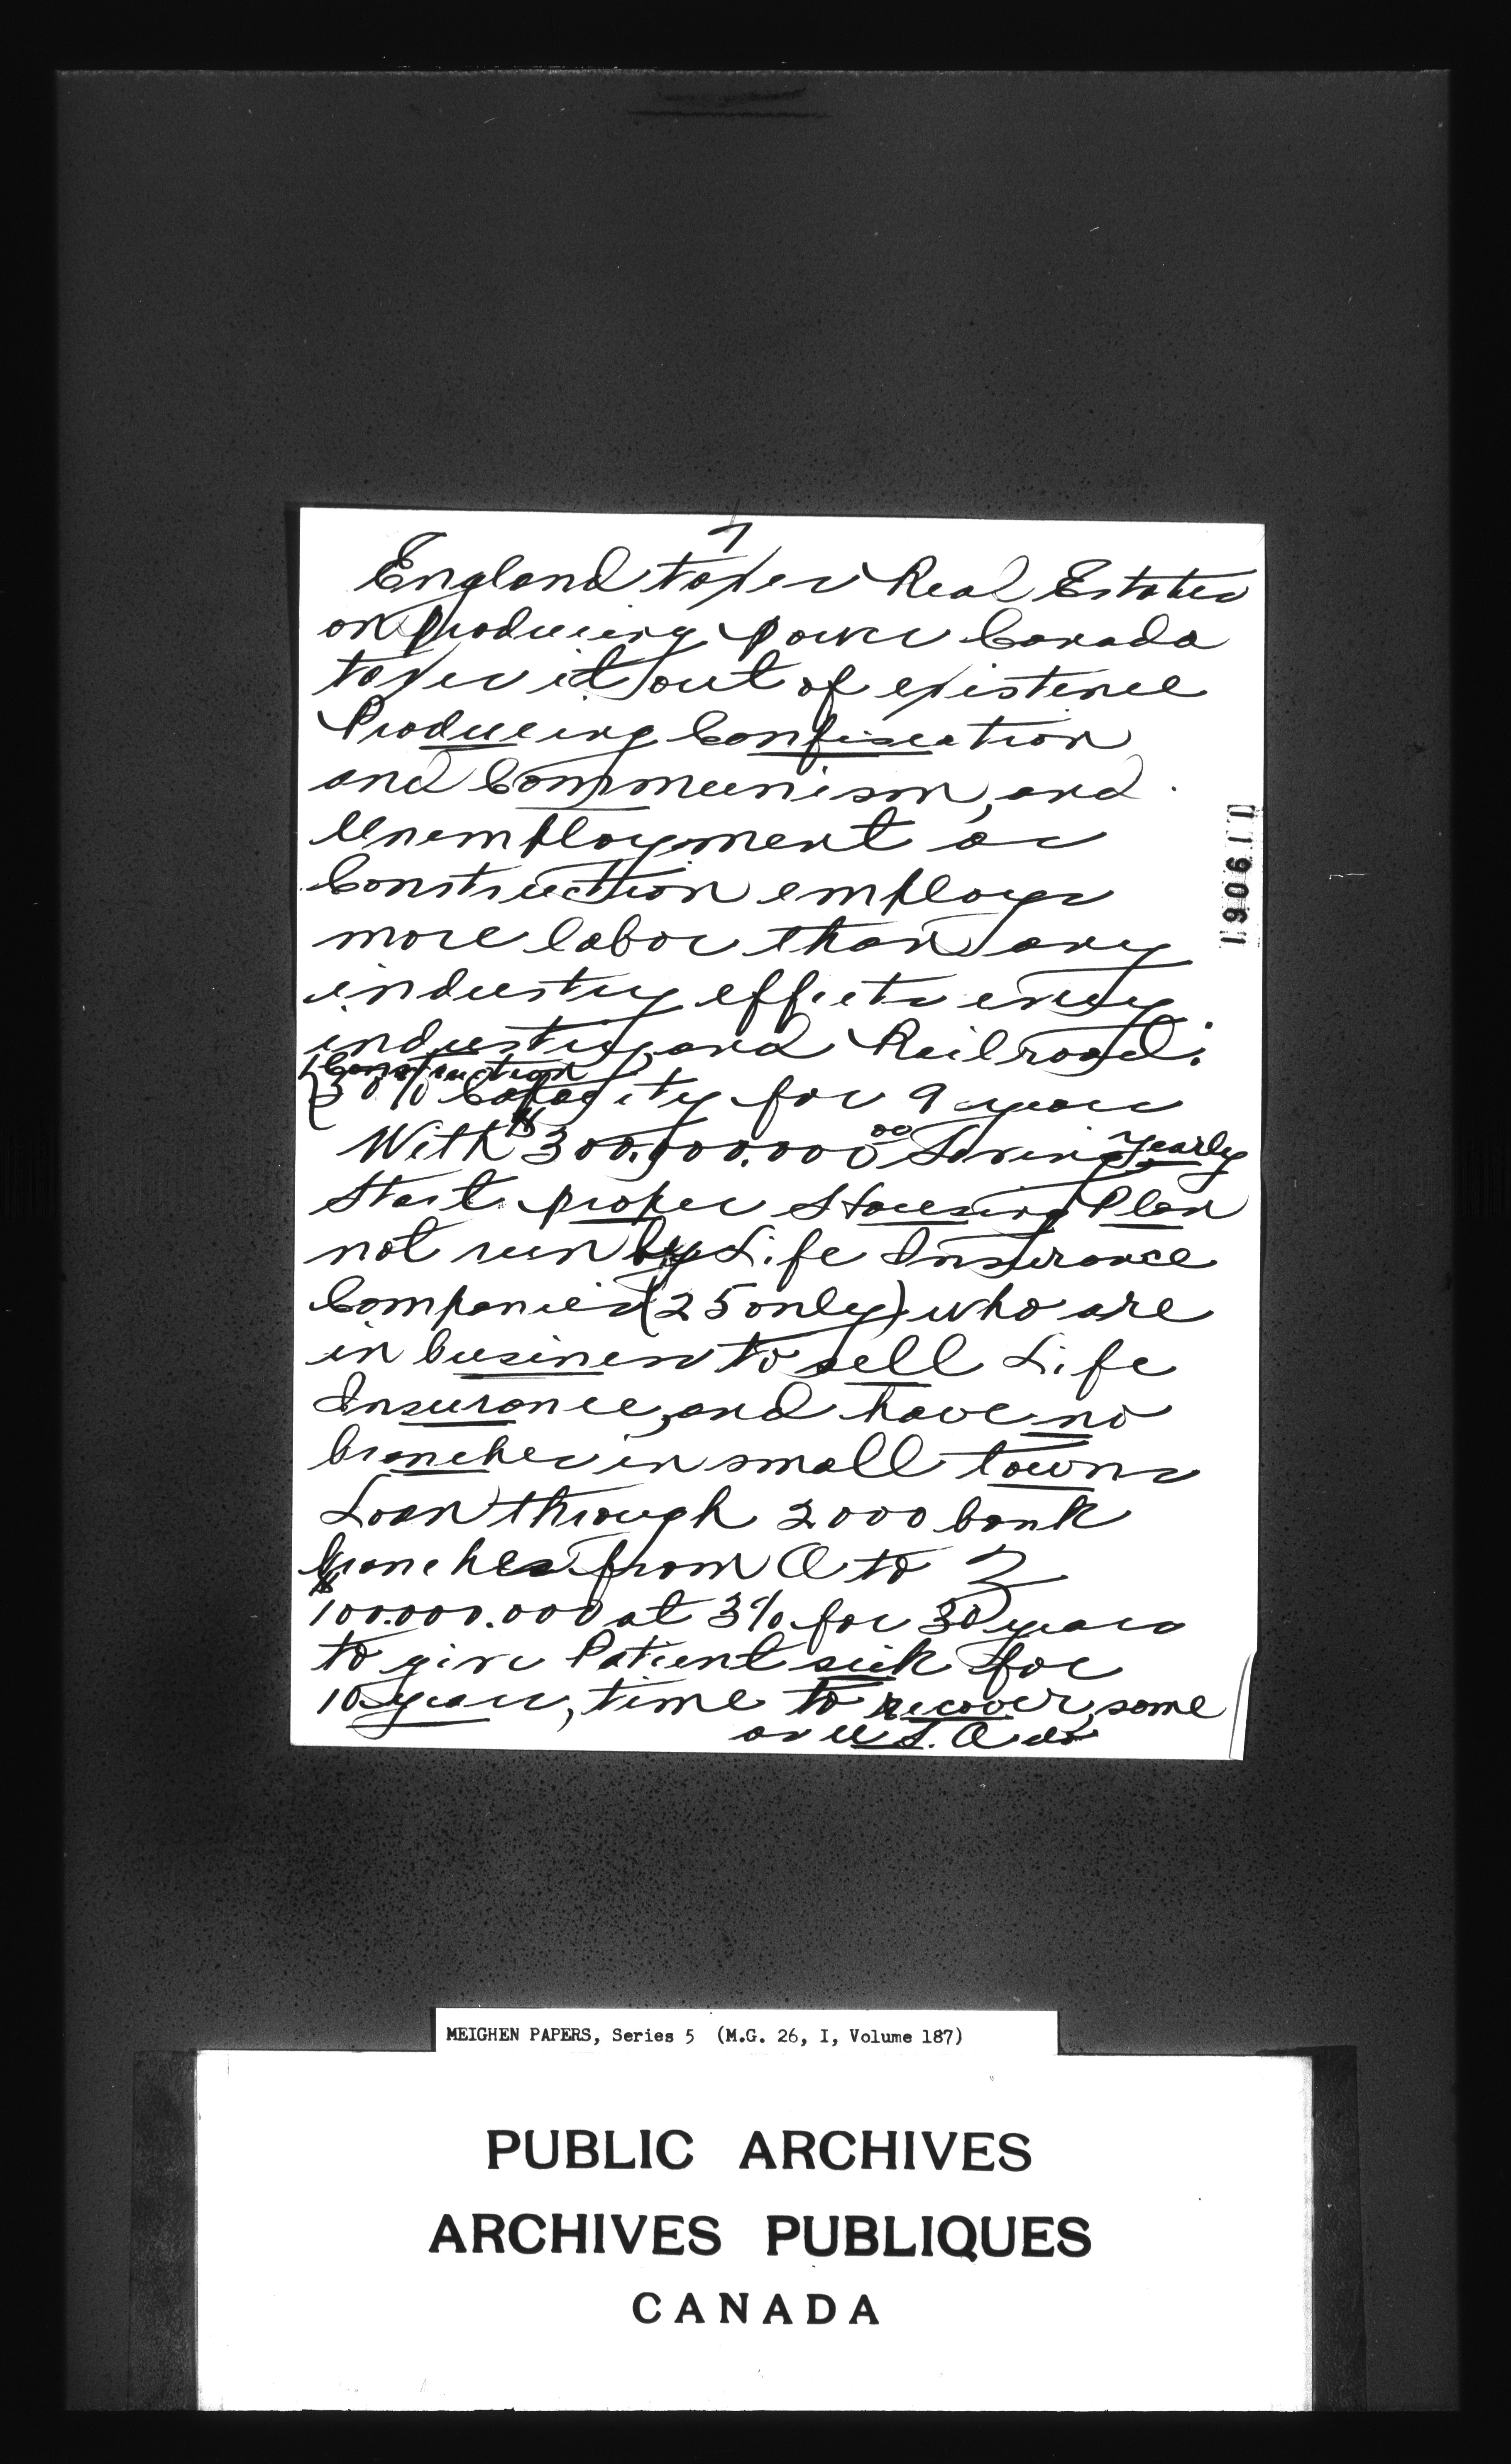 7
England taxes Real Estates
on Producing power Canada
taxes it out of existence
Producing Confiscation
and Communism, and
Unemployment as
Construction employs
more labor than any
industry effects every
industry, and Railroads.
Construction
30% Capacity for 9 years
With $300.000.000 00 Saving yearly
Start proper Housing Plan
not run by Life Insurance
Companies (25 only) who are
in business to sell Life
Insurance, and have no
branches in small towns
Loan through 2000 bank
branches from A to Z
$100.000.000 at 3% for 30 years
to give Patient sick for
10 years, time to recover, some
as U.S. A
119061
MEIGHEN PAPERS, Series 5 (M.G. 26, I, Volume 187)
PUBLIC ARCHIVES
ARCHIVES PUBLIQUES
CANADA